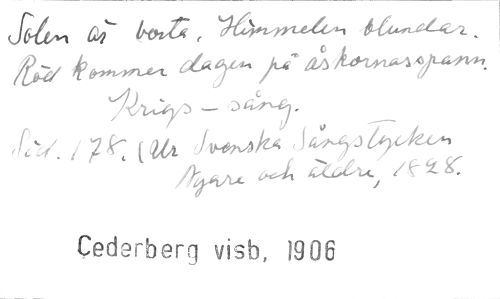 Solen är borta. Himmelen blundar.
Röd kommer dagen på åskornas spann.
Krigs-sång.
Sid. 178. (Ur Svenska Sångstycken
Nyare och äldre, 1828.
Cederberg visb, 1906